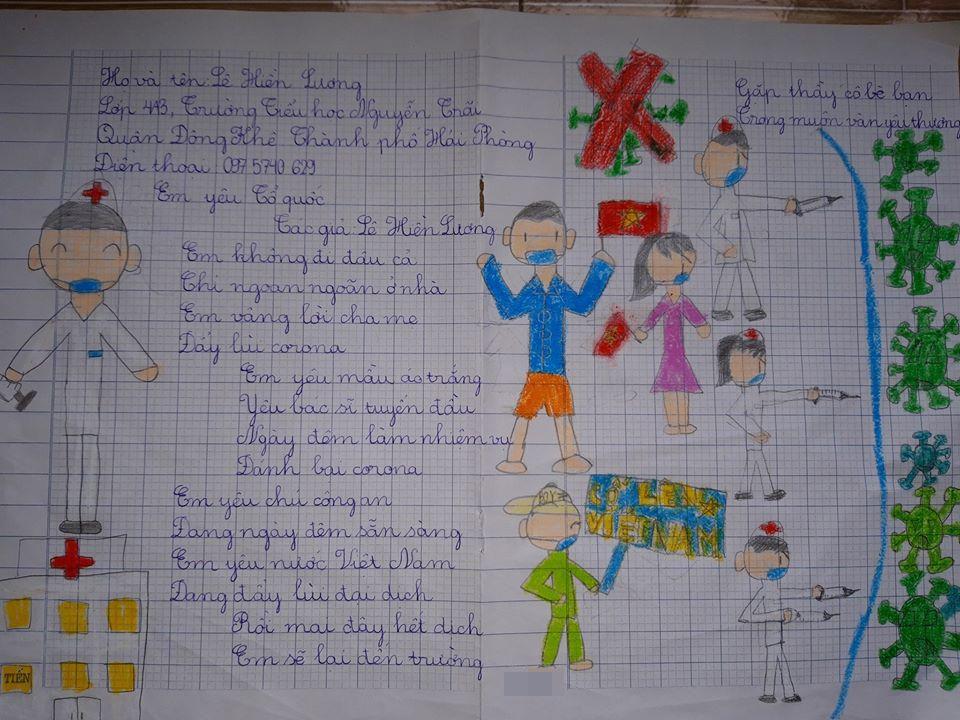 Họ và tên: Lê Hiền Lương
Lớp 4A3, Trường Tiểu học Nguyễn Trãi
Quận Đông Khê Thành phố Hải Phòng
Điện thoại: 097 5740 629
Em yêu Tổ quốc
Tác giả: Lê Hiền Lương
Em không đi đâu cả
Chỉ ngoan ngoãn ở nhà
Em vâng lời cha mẹ
Đẩy lùi corona
Em yêu mầu áo trắng
Yêu bác sĩ tuyến đầu
Ngày đêm làm nhiệm vụ
Đánh bại corona
Em yêu chú công an
Đang ngày đêm sẵn sàng
Em yêu nước Việt Nam
Đang đẩy lùi đại dịch
Rồi mai đây hết dịch
Em sẽ lại đến trường
TIẾN
Gặp thầy cô bè bạn
Trong muôn vàn yêu thương
BOY
CỐ LÊN
VIETNAM